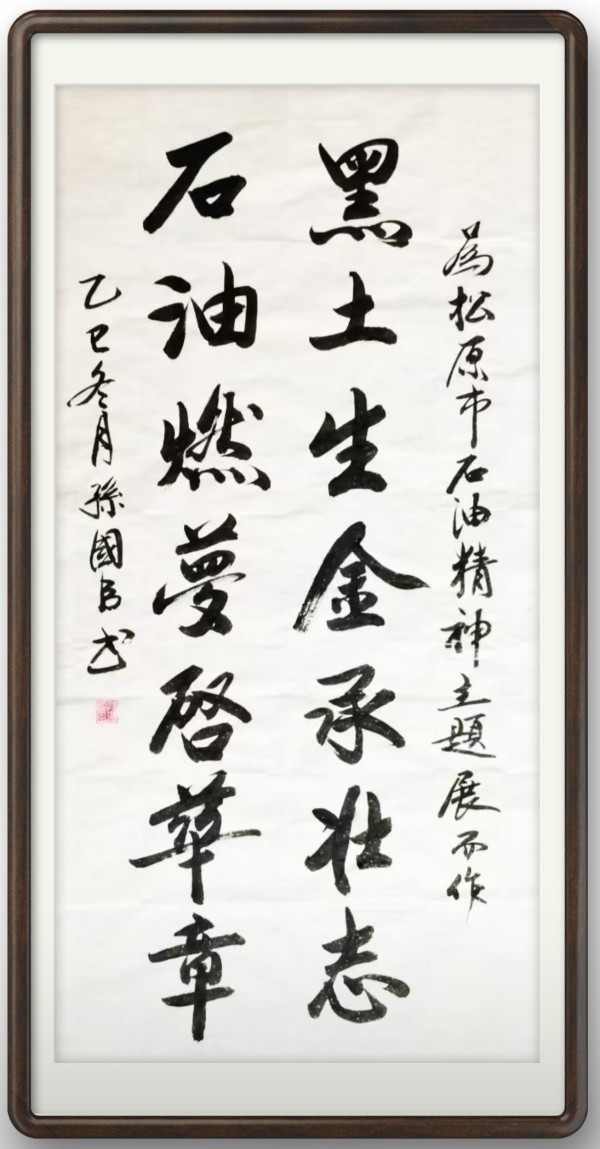 為松原市石油精神主題展而作
黑土生金承壯志
石油燃夢啓華章
乙巳冬月孫國臣书